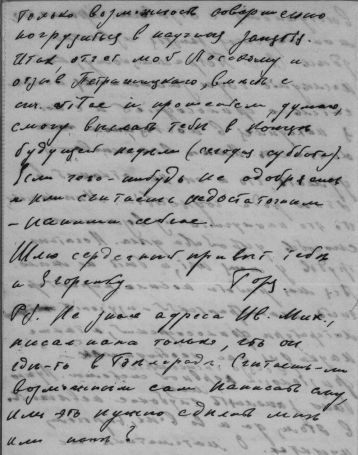 только возможность совершенно
погрузиться в научныя занятія.
Итак, отчет мой Лосскому и
отзыв Петражицкаго, вместе с
и прошеніем, думаю,
смогу выслать тебе в конце
будущей недели (сегодня суббота).
Если чего-нибудь не одобряешь
или считаешь недостаточным
– напиши
Шлю сердечный привет тебе
и Егоренку. Гор.
P.S. Не зная адреса Ив. Мих.,
писал папа только, что он
где-то в Белграде. Считаешь-ли
возможным сам написать ему,
или это нужно сделать мне
или папе?